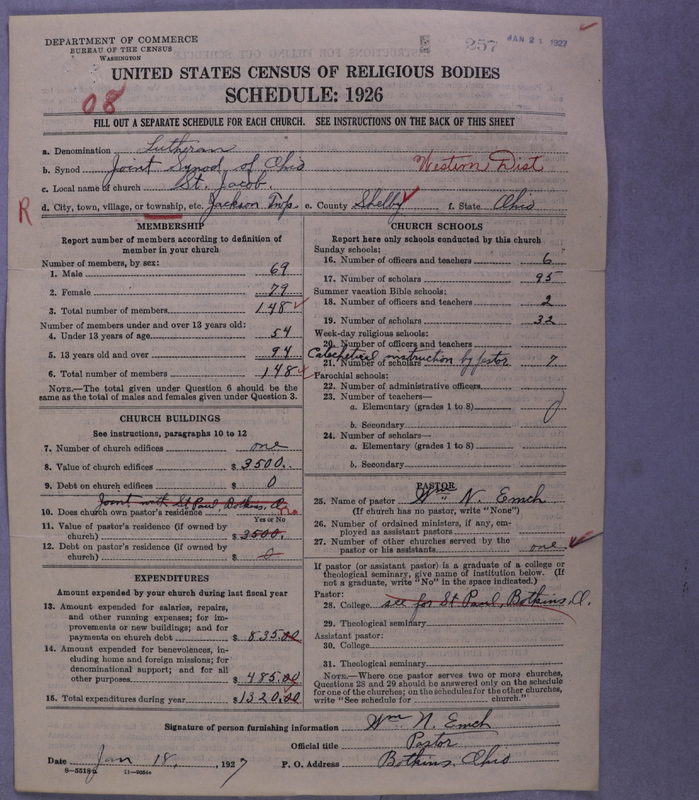 DEPARTMENT OF COMMERCE
BUREAU OF THE CENSUS
WASHINGTON
257
JAN 21 1927
UNITED STATES CENSUS OF RELIGIOUS BODIES
08
SCHEDULE: 1926
FILL OUT A SEPARATE SCHEDULE FOR EACH CHURCH. SEE INSTRUCTIONS ON THE BACK OF THIS SHEET
a. Denomination Lutheran
b. Synod Joint Synod of Ohio Western Dist
c. Local name of church St. Jacob.
R d. City, town, village, or township, etc. Jackson Twp. e. County Shelby f. State Ohio
MEMBERSHIP
Report number of members according to definition of
member in your church
Number of members, by sex:
1. Male 69
2. Female 79
3. Total number of members 148
Number of members under and over 13 years old:
4. Under 13 years of age 54
5. 13 years old and over 94
6. Total number of members 148
NOTE.—The total given under Question 6 should be the
same as the total of males and females given under Question 3.
CHURCH BUILDINGS
See instructions, paragraphs 10 to 12
7. Number of church edifices one
8. Value of church edifices $ 3500.
9. Debt on church edifices $ 0
Joint with St Paul, Botkins, O
10. Does church own pastor's residence no
Yes or No
11. Value of pastor's residence (if owned by
church) $ 3500.
12. Debt on pastor's residence (if owned by
church) $ 0
EXPENDITURES
Amount expended by your church during last fiscal year
13. Amount expended for salaries, repairs,
and other running expenses; for im-
provements or new buildings; and for
payments on church debt $ 835.00
14. Amount expended for benevolences, in-
cluding home and foreign missions; for
denominational support; and for all
other purposes $ 485.00
15. Total expenditures during year $ 1320.00
CHURCH SCHOOLS
Report here only schools conducted by this church
Sunday schools:
16. Number of officers and teachers 6
17. Number of scholars 95
Summer vacation Bible schools:
18. Number of officers and teachers 2
19. Number of scholars 32
Week-day religious schools:
20. Number of officers and teachers
Catechetical instruction by pastor
21. Number of scholars 7
Parochial schools:
22. Number of administrative officers
23. Number of teachers—
a. Elementary (grades 1 to 8) 0
b. Secondary
24. Number of scholars—
a. Elementary (grades 1 to 8)
b. Secondary
PASTOR
25. Name of pastor Wm. N. Emch
(If church has no pastor, write "None")
26. Number of ordained ministers, if any, em-
ployed as assistant pastors
27. Number of other churches served by the
pastor or his assistants one
If pastor (or assistant pastor) is a graduate of a college or
theological seminary, give name of institution below. (If
not a graduate, write "No" in the space indicated.)
Pastor:
28. College see for St Paul, Botkins, O.
29. Theological seminary
Assistant pastor:
30. College
31. Theological seminary
NOTE.—Where one pastor serves two or more churches,
Questions 28 and 29 should be answered only on the schedule
for one of the churches; on the schedules for the other churches,
write "See schedule for church."
Signature of person furnishing information Wm N. Emch
Official title Pastor
Date Jan 18, , 1927 P. O. Address Botkins, Ohio
8—5518a 11—9054